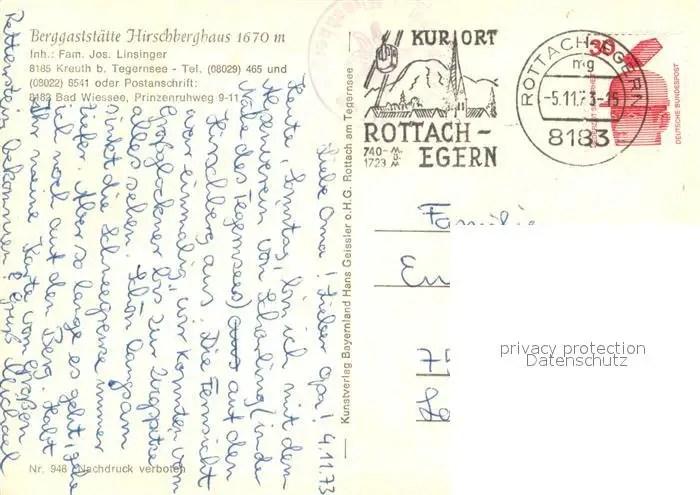 Berggaststätte Hirschberghaus 1670 m
Inh.: Fam. Jos. Linsinger
8185 Kreuth b. Tegernsee - Tel. (08029) 465 und
(08022) 6541 oder Postanschrift:
8182 Bad Wiessee, Prinzenruhweg 9-11
4.11.73
Liebe Oma! Lieber Opa!
Heute, Sonntag, bin ich mit dem
Alpenverein von (in der
Nähe des Tegernsees) auf den
Hirschberg aus. Die Fernsicht
war einmalig, wir konnten vom
Großglockner bis zur Zugspitze
alles sehen. Schon langsam
sinkt die Schneegrenze immer
tiefer. Aber so lange es geht, gehe
ich noch auf den Berg. Habt
Ihr meine Karte vom Großen
Rettenstein bekommen? Gruß Michael
Nr. 948 Nachdruck verboten
Kunstverlag Bayernland Hans Geissler o.H.G. Rottach am Tegernsee
KURORT
ROTTACH-
EGERN
740-
1723 m
ROTTACH-EGERN
mg
-5.11.73-15
8183
30
DEUTSCHE BUNDESPOST
Familie
privacy protection
Datenschutz